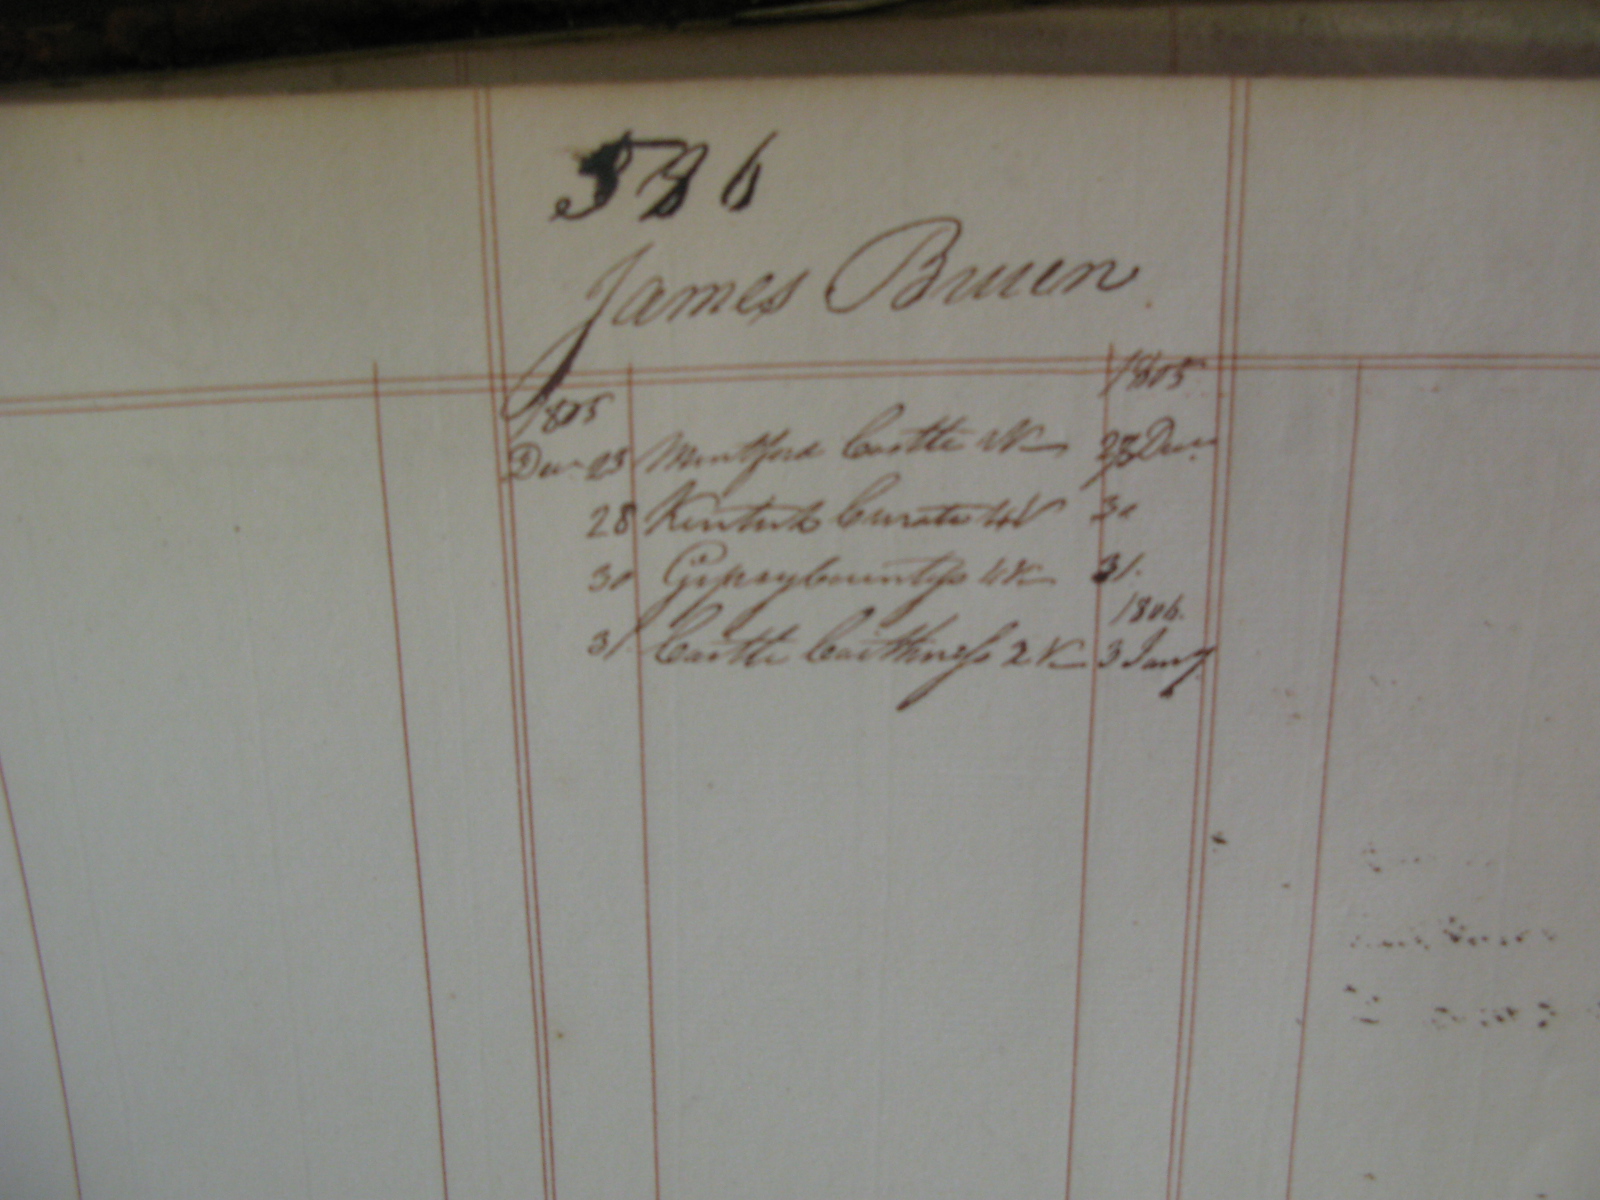 586
James Bruen
1805 1805
Decr 23 Montford Castle 1 V 27 Decr
28 Kentish Curate 4 V 30
30 Gipsey Countess 4 V 31.
1806.
31 Castle Caithness 2 V 3 Jany